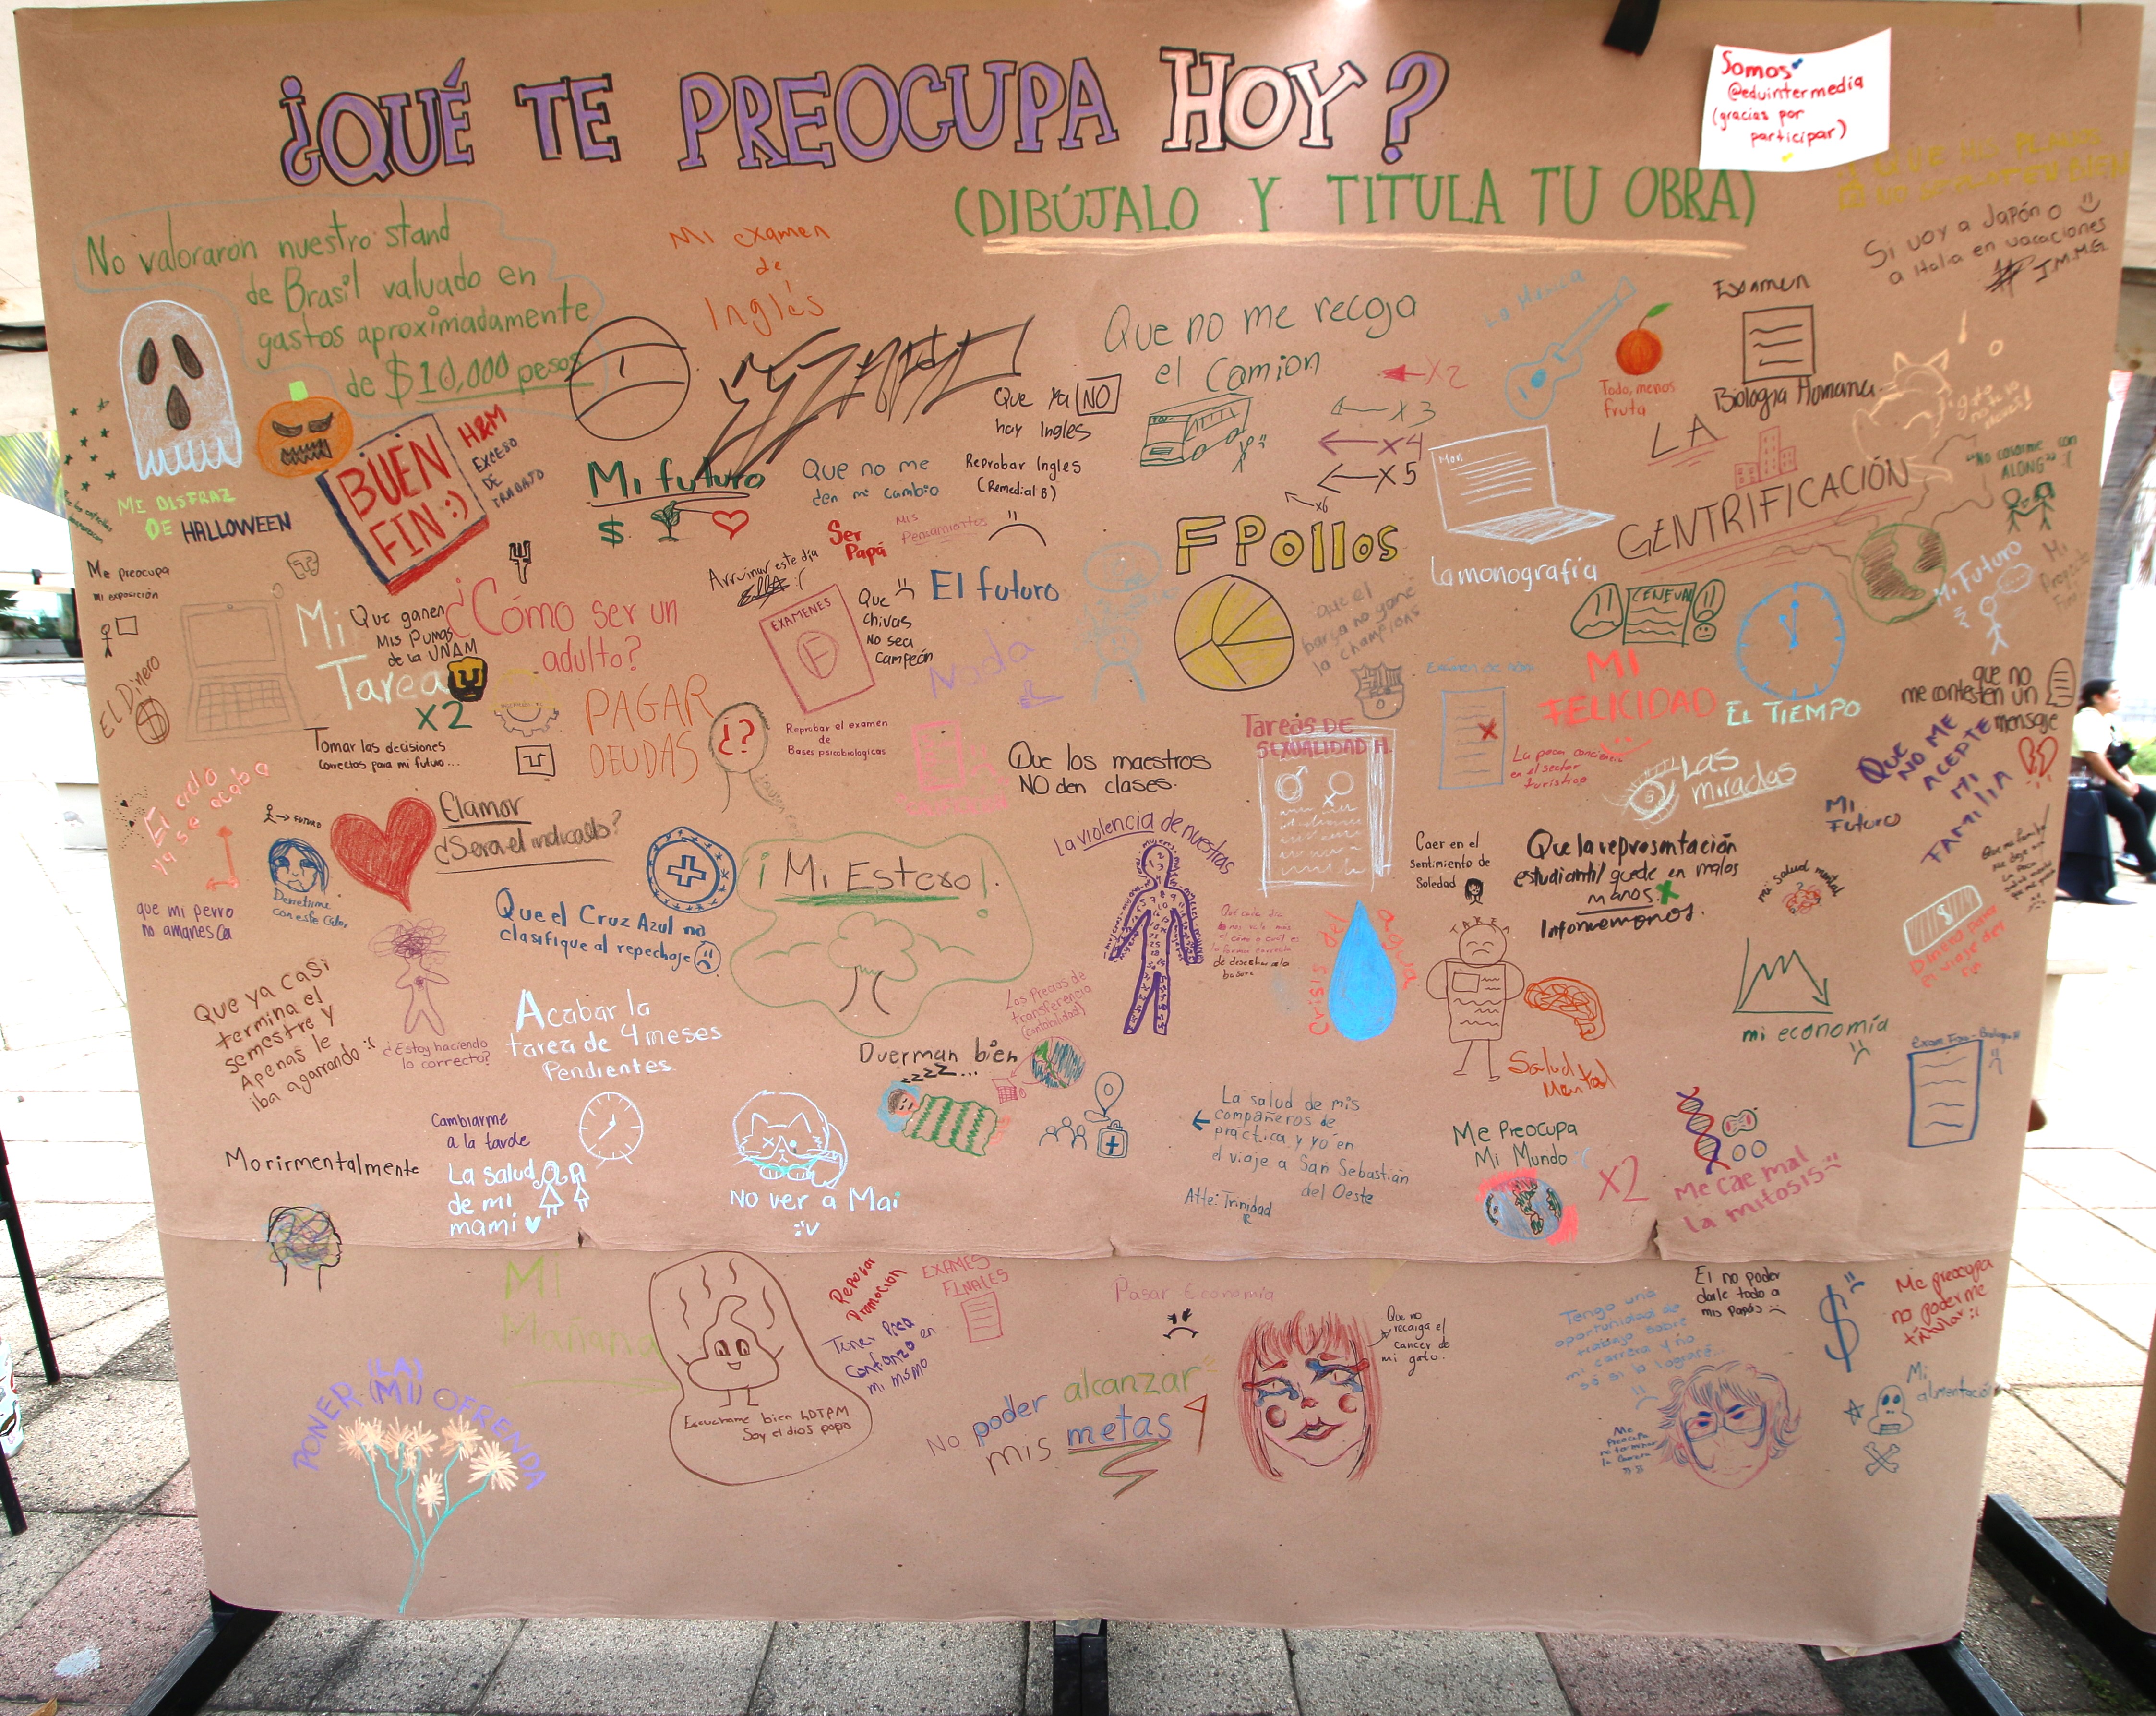 ¿QUÉ TE PREOCUPA HOY?
(DIBÚJALO Y TITULA TU OBRA)
Somos
@eduintermedia
(gracias por
participar)
No valoraron nuestro stand
de Brasil valuado en
gastos aproximadamente
de $10,000 pesos
Mi examen
de
Inglés
Que no me recoja
el Camion
X2
X3
X4
X5
x6
La Música
Todo, menos
fruta
Examen
Biología Humana
Si voy a Japón o
a Italia en vacaciones
J.M.M.G.
MI DISFRAZ
DE HALLOWEEN
BUEN
FIN :)
H&M
EXCESO
DE
TRABAJO
Mi futuro
$
Que no me
den mi cambio
Que ya NO
hay Ingles
Reprobar Ingles
(Remedial B)
Ser
Papá
Mis
Pensamientos
FPollos
Mon.
La monografía
LA
GENTRIFICACIÓN
"No casarme con
ALONG" :(
Me preocupa
mi exposición
El Dinero
$
Mi
Tarea
X2
Que ganen
Mis Pumas
de la UNAM
¿Cómo ser un
adulto?
Arruinar este día
:(
EXAMENES
F
Reprobar el examen
de
Bases psicobiologicas
Que
chivas
no sea
campeón
El futuro
Nada
que el
barça no gane
la champions
CENEVAL
MI
FELICIDAD
EL TIEMPO
Mi Futuro
que no
me contesten un
mensaje
QUE
NO ME
ACEPTE
MI
FAMILIA
MI
Futuro
Tomar las decisiones
correctas para mi futuro...
PAGAR
DEUDAS
¿?
Que los maestros
NO den clases.
Tareas DE
SEXUALIDAD H.
La poca conciencia
en el sector
turístico
Las
miradas
El ciclo
ya se acaba
FUTURO
Derretirme
con este Calor
El amor
¿Sera el indicado?
Que el Cruz Azul no
clasifique al repechaje
¡Mi Estero!
La violencia de nuestras
Caer en el
sentimiento de
Soledad
Que la representación
estudiantil quede en malos
manos.
Informemonos.
mi salud mental
que mi perro
no amanesca
Que ya casi
termina el
semestre y
Apenas le
iba agarrando :(
¿Estoy haciendo
lo correcto?
Acabar la
tarea de 4 meses
Pendientes
Los Precios de
transferencia
(contabilidad)
de desechar la
basura
Crisis del agua
TAREA
Salud
Mental
mi economía
Duerman bien
zzzz...
Morirmentalmente
Cambiarme
a la tarde
La salud
de mi
mami
NO ver a Mai
:'v
La salud de mis
compañeros de
práctica y yo en
el viaje a San Sebastián
del Oeste
Atte: Trinidad
Me Preocupa
Mi Mundo :(
X2
Me cae mal
la mitosis
Mi
Mañana
PONER (LA) (MI) OFRENDA
Escuchame bien hDTPM
Soy el dios popo
Reprobar
Promoción
EXAMES
FINALES
Tener poca
Confianza en
mi mismo
Pasar Economía
No poder alcanzar
mis metas
Que no
recaiga el
cancer de
mi gato.
Tengo una
oportunidad de
trabajo sobre
mi carrera y no
sé si la lograré...
El no poder
darle todo a
mis papás
$
Me preocupa
no poderme
titular :(
Mi
alimentación
Me
preocupa
no terminar
la carrera